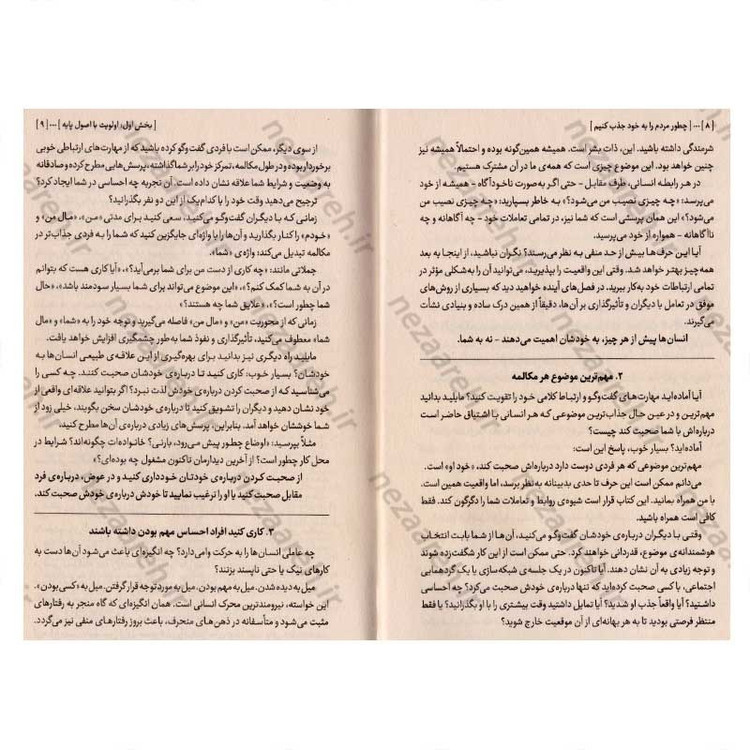 [ ۸ ] --- [ چطور مردم را به خود جذب کنیم ]
شرمندگی داشته باشید. این، ذات بشر است. همیشه همین‌گونه بوده و احتمالاً همیشه نیز
چنین خواهد بود. این موضوع چیزی است که همه‌ی ما در آن مشترک هستیم.
در هر رابطه انسانی، طرف مقابل - حتی اگر به‌صورت ناخودآگاه - همیشه از خود
می‌پرسد: «چه چیزی نصیب من می‌شود؟» به خاطر بسپارید: «چه چیزی نصیب من
می‌شود؟» این همان پرسشی است که شما نیز، در تمامی تعاملات خود - چه آگاهانه و چه
ناآگاهانه - همواره از خود می‌پرسید.
آیا این حرف‌ها بیش از حد منفی به نظر می‌رسند؟ نگران نباشید، از اینجا به بعد
همه‌چیز بهتر خواهد شد. وقتی این واقعیت را بپذیرید، می‌توانید آن را به‌شکلی مؤثر در
تمامی ارتباطات خود به‌کار ببرید. در فصل‌های آینده خواهید دید که بسیاری از روش‌های
موفق در تعامل با دیگران و تأثیرگذاری بر آن‌ها، دقیقاً از همین درک ساده و بنیادی نشأت
می‌گیرند.
انسان‌ها پیش از هر چیز، به خودشان اهمیت می‌دهند - نه به شما.
۲. مهم‌ترین موضوع هر مکالمه
آیا آماده‌اید مهارت‌های گفت‌وگو و ارتباط کلامی خود را تقویت کنید؟ مایلید بدانید
مهم‌ترین و در عین حال جذاب‌ترین موضوعی که هر انسانی با اشتیاق حاضر است
درباره‌اش با شما صحبت کند چیست؟
آماده‌اید؟ بسیار خوب، پاسخ این است:
مهم‌ترین موضوعی که هر فردی دوست دارد درباره‌اش صحبت کند، «خود او» است.
می‌دانم ممکن است این حرف تا حدی بدبینانه به‌نظر برسد، اما واقعیت همین است.
با من همراه بمانید. این کتاب قرار است شیوه‌ی روابط و تعاملات شما را دگرگون کند. فقط
کافی است همراه باشید.
وقتی با دیگران درباره‌ی خودشان گفت‌وگو می‌کنید، آن‌ها از شما بابت انتخاب
هوشمندانه‌ی موضوع، قدردانی خواهند کرد. حتی ممکن است از این کار شگفت‌زده شوند
و توجه زیادی به آن نشان دهند. آیا تاکنون در یک جلسه‌ی شبکه‌سازی یا یک گردهمایی
اجتماعی، با کسی صحبت کرده‌اید که تنها درباره‌ی خودش صحبت می‌کرد؟ چه احساسی
داشتید؟ آیا واقعاً جذب او شدید؟ آیا تمایل داشتید وقت بیشتری را با او بگذرانید؟ یا فقط
منتظر فرصتی بودید تا به هر بهانه‌ای از آن موقعیت خارج شوید؟
[ بخش اول: اولویت با اصول پایه ] --- [ ۹ ]
از سوی دیگر، ممکن است با فردی گفت‌وگو کرده باشید که از مهارت‌های ارتباطی خوبی
برخوردار بوده و در طول مکالمه، تمرکز خود را بر شما گذاشته، پرسش‌هایی مطرح کرده و صادقانه
به وضعیت و شرایط شما علاقه نشان داده است. آن تجربه چه احساسی در شما ایجاد کرد؟
ترجیح می‌دهید وقت خود را با کدام‌یک از این دو نفر بگذرانید؟
زمانی که با دیگران گفت‌وگو می‌کنید، سعی کنید برای مدتی «من»، «مال من» و
«خودم» را کنار بگذارید و آن‌ها را با واژه‌ای جایگزین کنید که شما را به فردی جذاب‌تر در
مکالمه تبدیل می‌کند: واژه‌ی «شما».
جملاتی مانند: «چه کاری از دست من برای شما برمی‌آید؟»، «آیا کاری هست که بتوانم
در آن به شما کمک کنم؟»، «این موضوع می‌تواند برای شما بسیار سودمند باشد»، «حال
شما چطور است؟»، «علایق شما چه هستند؟»
زمانی که از محوریت «من» و «مال من» فاصله می‌گیرید و توجه خود را به «شما» و «مال
شما» معطوف می‌کنید، تأثیرگذاری و نفوذ شما به‌طور چشمگیری افزایش می‌یافت.
مایلید راه دیگری نیز بدانید برای بهره‌گیری از این علاقه‌ی طبیعی انسان‌ها به
خودشان؟ بسیار خوب: کاری کنید تا درباره‌ی خودشان صحبت کنند. چه کسی را
می‌شناسید که از صحبت کردن درباره‌ی خودش لذت نبرد؟ اگر بتوانید علاقه‌ای واقعی از
خود نشان دهید و دیگران را تشویق کنید تا درباره‌ی خودشان سخن بگویند، خیلی زود از
شما خوششان خواهد آمد. بنابراین، پرسش‌های زیادی درباره‌ی آن‌ها مطرح کنید،
مثلاً بپرسید: «اوضاع چطور پیش می‌رود، بارنی؟ خانواده‌ات چگونه‌اند؟ شرایط در
محل کار چطور است؟ از آخرین دیدارمان تاکنون مشغول چه بوده‌ای؟»
از صحبت کردن درباره‌ی خودتان خودداری کنید و در عوض، درباره‌ی فرد
مقابل صحبت کنید یا او را ترغیب نمایید تا خودش درباره‌ی خودش صحبت کند.
۳. کاری کنید افراد احساس مهم بودن داشته باشند
چه عاملی انسان‌ها را به حرکت وامی‌دارد؟ چه انگیزه‌ای باعث می‌شود آن‌ها دست به
کارهای نیک یا حتی ناپسند بزنند؟
میل به دیده شدن. میل به مهم بودن. میل به مورد توجه قرار گرفتن. میل به «کسی بودن».
این خواسته، نیرومندترین محرک انسانی است. همان انگیزه‌ای که گاه منجر به رفتارهای
مثبت می‌شود و متأسفانه در ذهن‌های منحرف، باعث بروز رفتارهای منفی نیز می‌گردد.
nezaareh.ir
nezaareh.ir
nezaareh.ir
nezaareh.ir